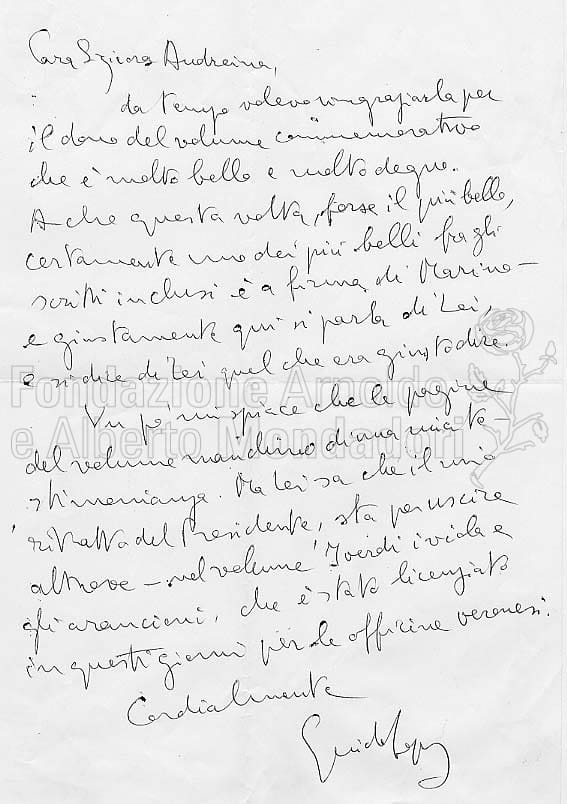 Cara Signora Andreina,
da tempo volevo ringraziarla per
il dono del volume commemorativo
che è molto bello e molto degno.
Anche questa volta, forse il più bello,
certamente uno dei più belli fra gli
scritti inclusi è a firma di Marino —
e giustamente qui si parla di Lei,
e si dice di Lei quel che era giusto dire.
Fondazione Arnoldo
e Alberto Mondadori
Un po' mi spiace che le pagine
del volume manchino di una mia te-
stimonianza. Ma Lei sa che il mio
"ritratto del Presidente" sta per uscire
altrove — nel volume "I verdi i viola e
gli arancioni", che è stato licenziato
in questi giorni per le officine veronesi.
Cordialmente
Guido Lopez